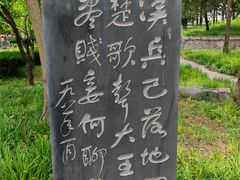 漢兵已落地
楚歌聲大王
盡賤妾何聊